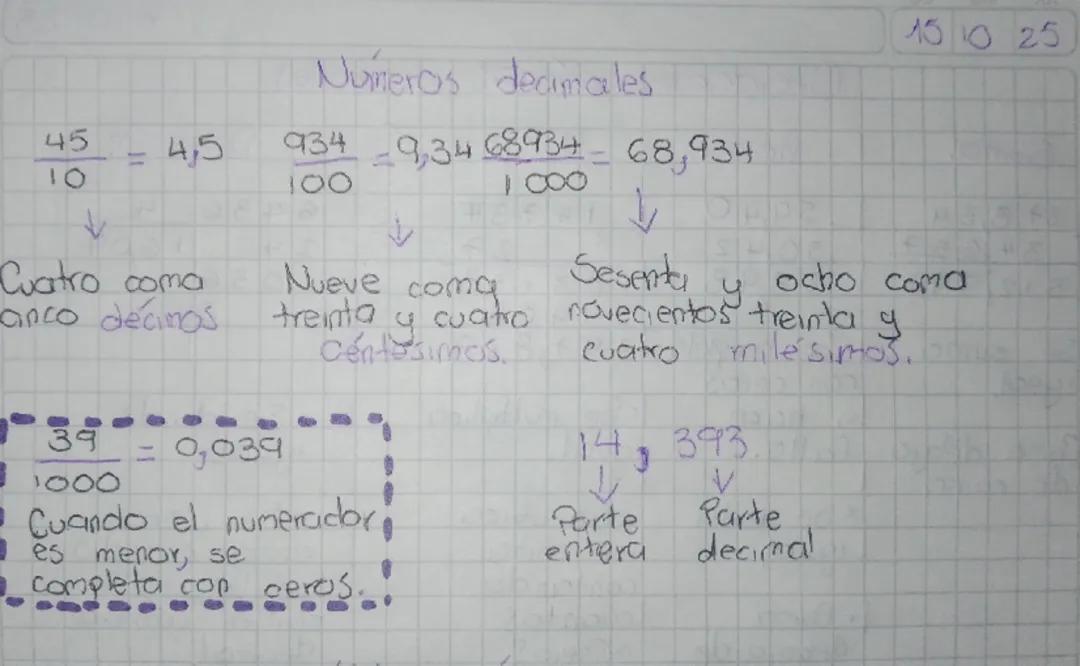 15 10 25
Números decimales
45/10 = 4,5  934/100 = 9,34  68934/1000 = 68,934
Cuatro coma
cinco décimos
Nueve coma
treinta y cuatro
centésimos.
Sesenta y ocho coma
novecientos treinta y
cuatro milésimos.
39/1000 = 0,039
Cuando el numerador
es menor, se
completa con ceros.
14, 393
Parte
entera
Parte
decimal